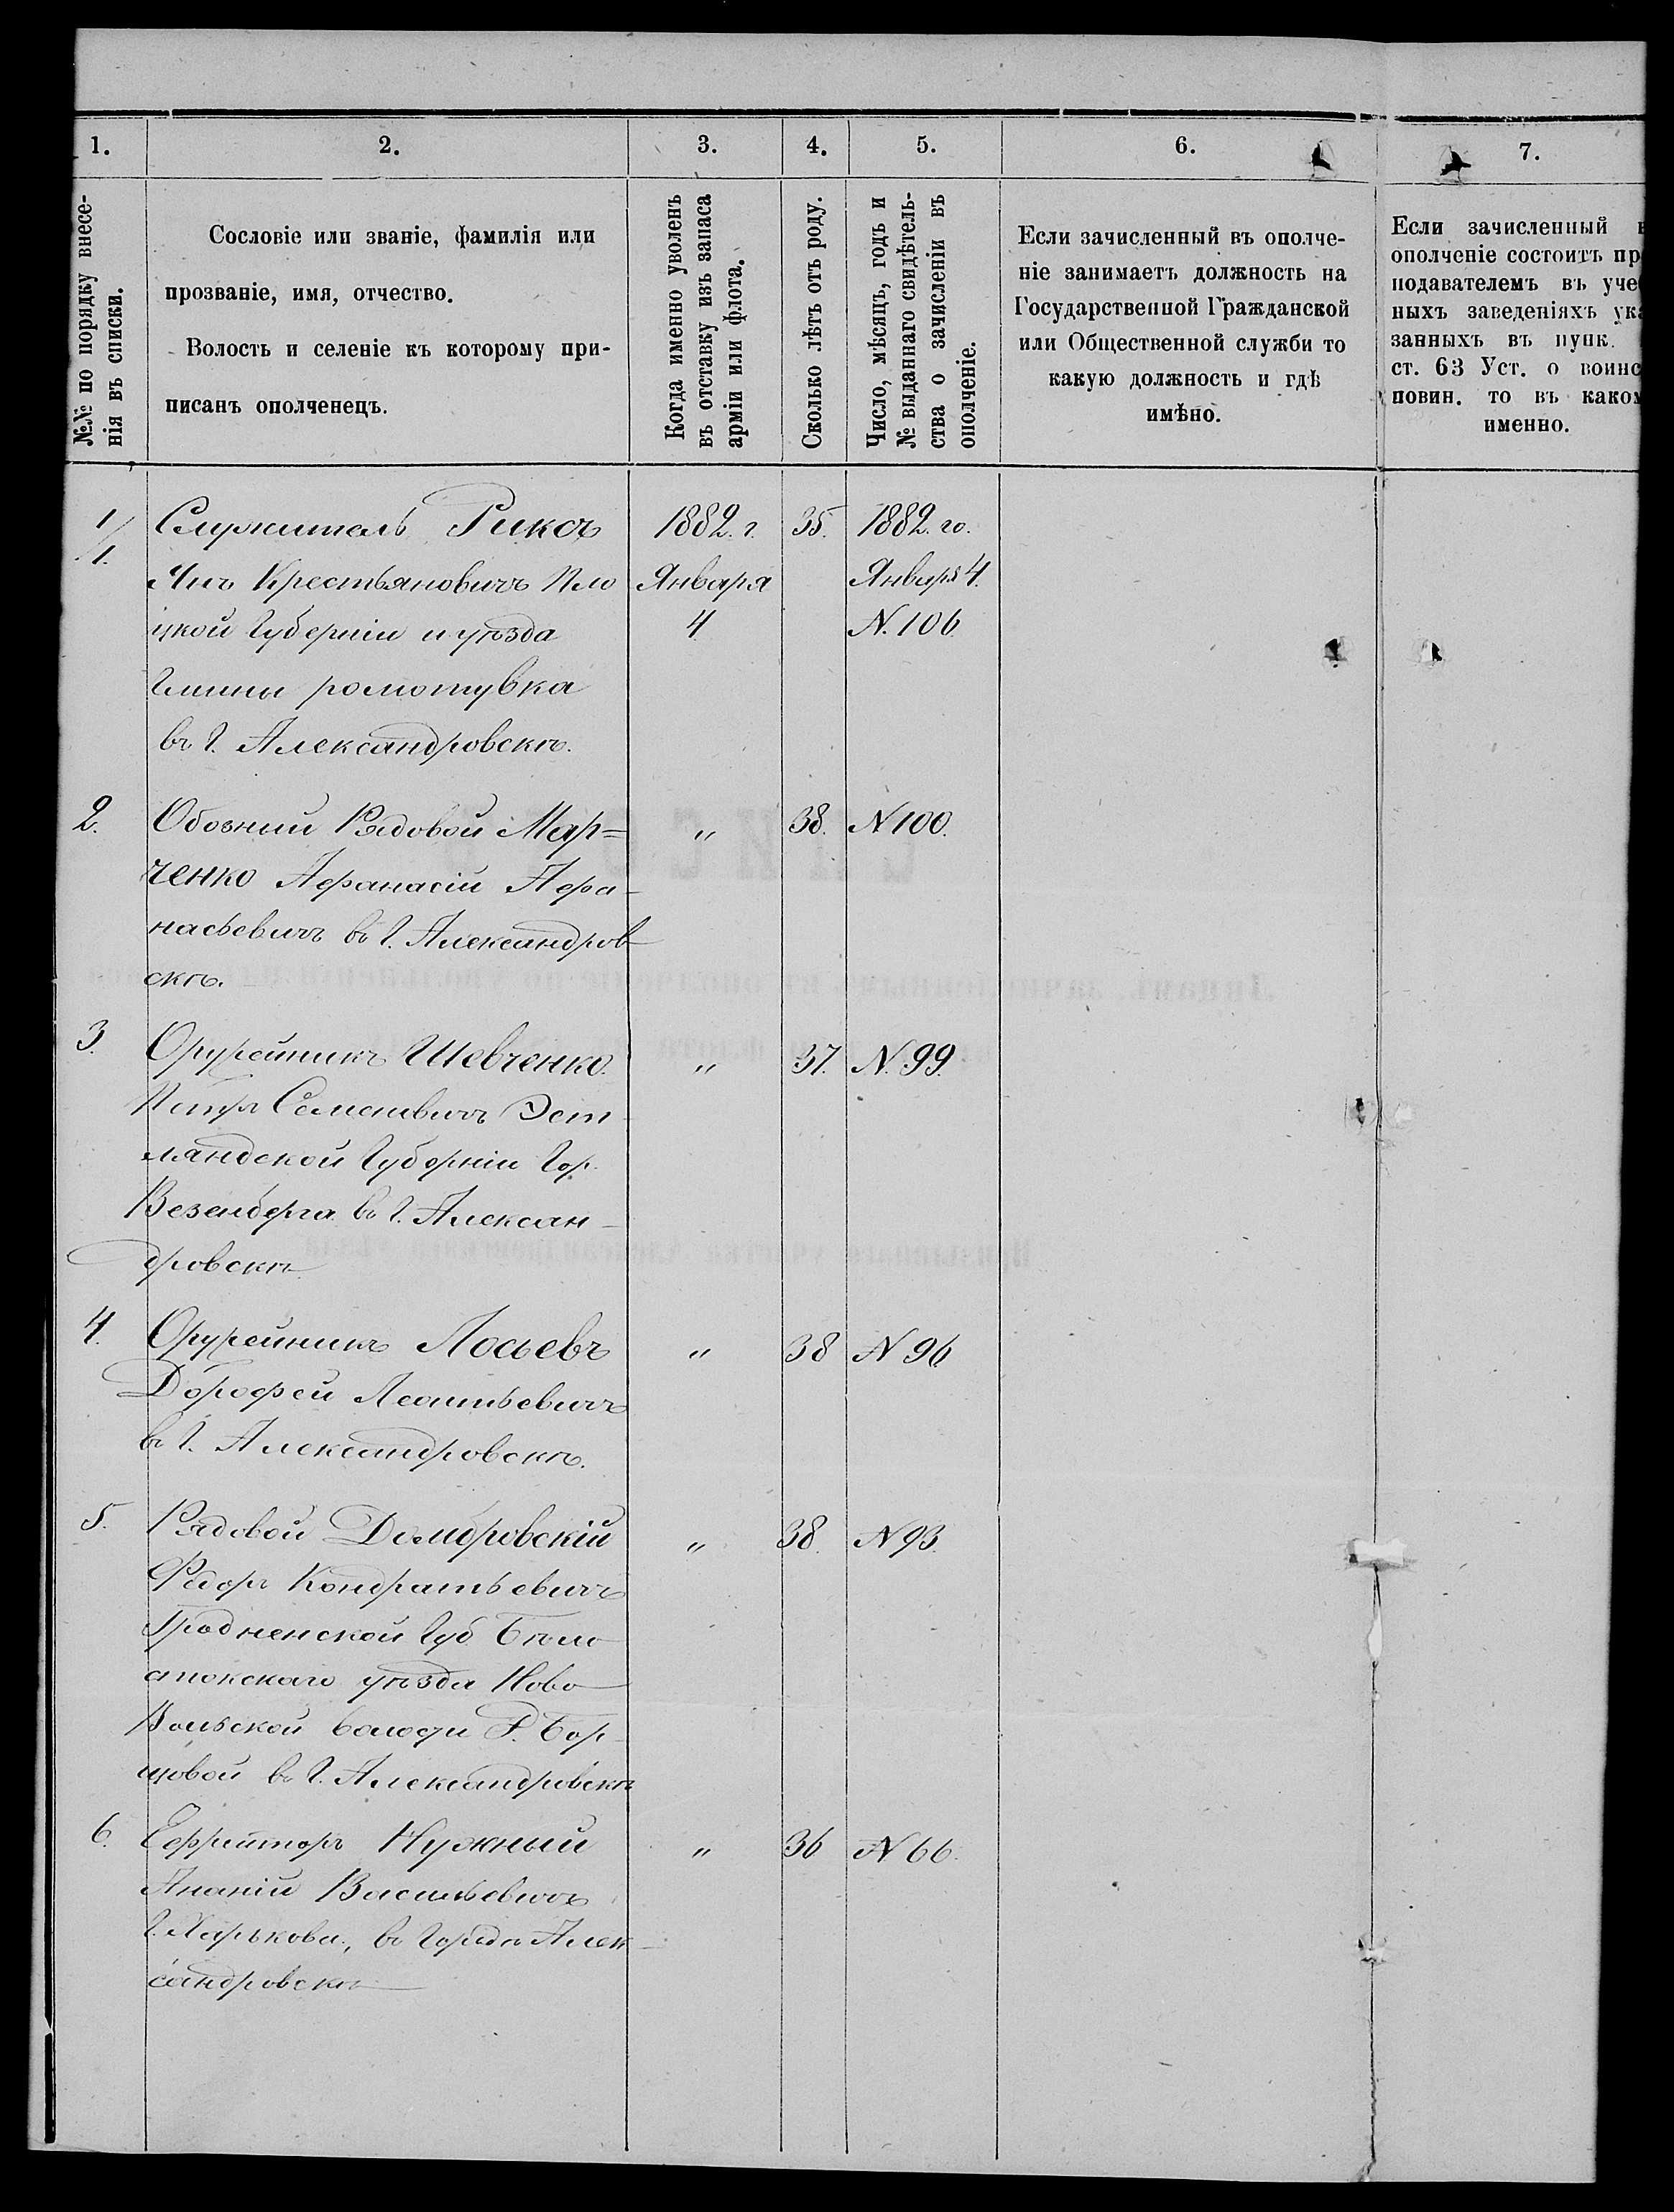 1.
2.
3.
4.
5.
6.
7.
№№ по порядку внесе-
нія въ списки.
Сословіе или званіе, фамилія или
прозваніе, имя, отчество.
Волость и селеніе къ которому при-
писанъ ополченецъ.
Когда именно уволенъ
въ отставку изъ запаса
арміи или флота.
Сколько лѣтъ отъ роду.
Число, мѣсяцъ, годъ и
№ выданнаго свидѣтель-
ства о зачисленіи въ
ополченіе.
Если зачисленный въ ополче-
ніе занимаетъ должность на
Государственной Гражданской
или Общественной служби то
какую должность и гдѣ
имѣно.
Если зачисленный в
ополченіе состоитъ пр
подавателемъ въ уче
ныхъ заведеніяхъ ук
занныхъ въ пунк.
ст. 63 Уст. о воинс
повин. то въ како
именно.
1/1. Служитель Риксъ 1882. г. 35. 1882. го.
Янъ Крестьяновичъ Пло Января Января 4.
цкой Губерніи и уѣзда 4 N. 106
Гмины ромотувка
въ Г. Александровскѣ.
2. Обозний Рядовой Мар= " 38. N 100.
ченко Афанасій Афа-
насьевичъ въ Г. Александров-
скѣ.
3. Оружейникъ Шевченко. " 37. N. 99.
Петръ Семеновичъ Эст
ляндской Губерніи Гор.
Везенберга въ Г. Алексан-
дровскѣ
4. Оружейникъ Лосьевъ " 38 N 96
Дорофей Леонтьевичъ
въ Г. Александровскѣ.
5. Рядовой Домбровскій " 38. N 93.
Федоръ Кондратьевичъ
Гродненской Губ Бѣло
стокскаго уѣзда Ново
Вольской волости Д. Бор
щовой въ Г. Александровскѣ
6. Ефрейторъ Нужный " 36 N 66.
Ананій Васильевичъ
Г. Харькова, въ Городѣ Алек-
сандровскѣ